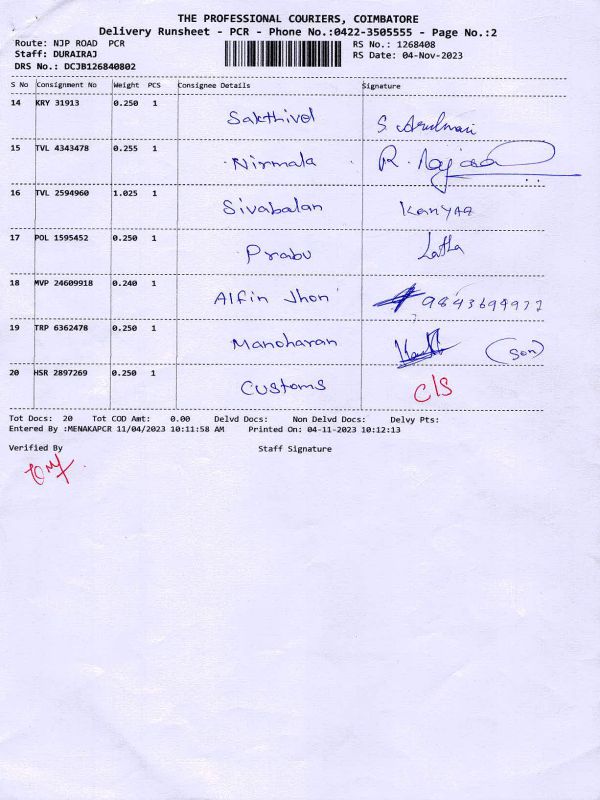 THE PROFESSIONAL COURIERS, COIMBATORE
Delivery Runsheet - PCR - Phone No.:0422-3505555 - Page No.:2
Route: NJP ROAD PCR RS No.: 1268408
Staff: DURAIRAJ RS Date: 04-Nov-2023
DRS No.: DCJB126840802
S No Consignment No Weight PCS Consignee Details Signature
14 KRY 31913 0.250 1 Sakthivel
15 TVL 4343478 0.255 1 Nirmala
16 TVL 2594960 1.025 1 Sivabalan Kanyaa
17 POL 1595452 0.250 1 Prabu Latha
18 MVP 24609918 0.240 1 Alfin Jhon 9843694977
19 TRP 6362478 0.250 1 Manoharan (Son)
20 HSR 2897269 0.250 1 Customs C/S
Tot Docs: 20 Tot COD Amt: 0.00 Delvd Docs: Non Delvd Docs: Delvy Pts:
Entered By :MENAKAPCR 11/04/2023 10:11:58 AM Printed On: 04-11-2023 10:12:13
Verified By Staff Signature